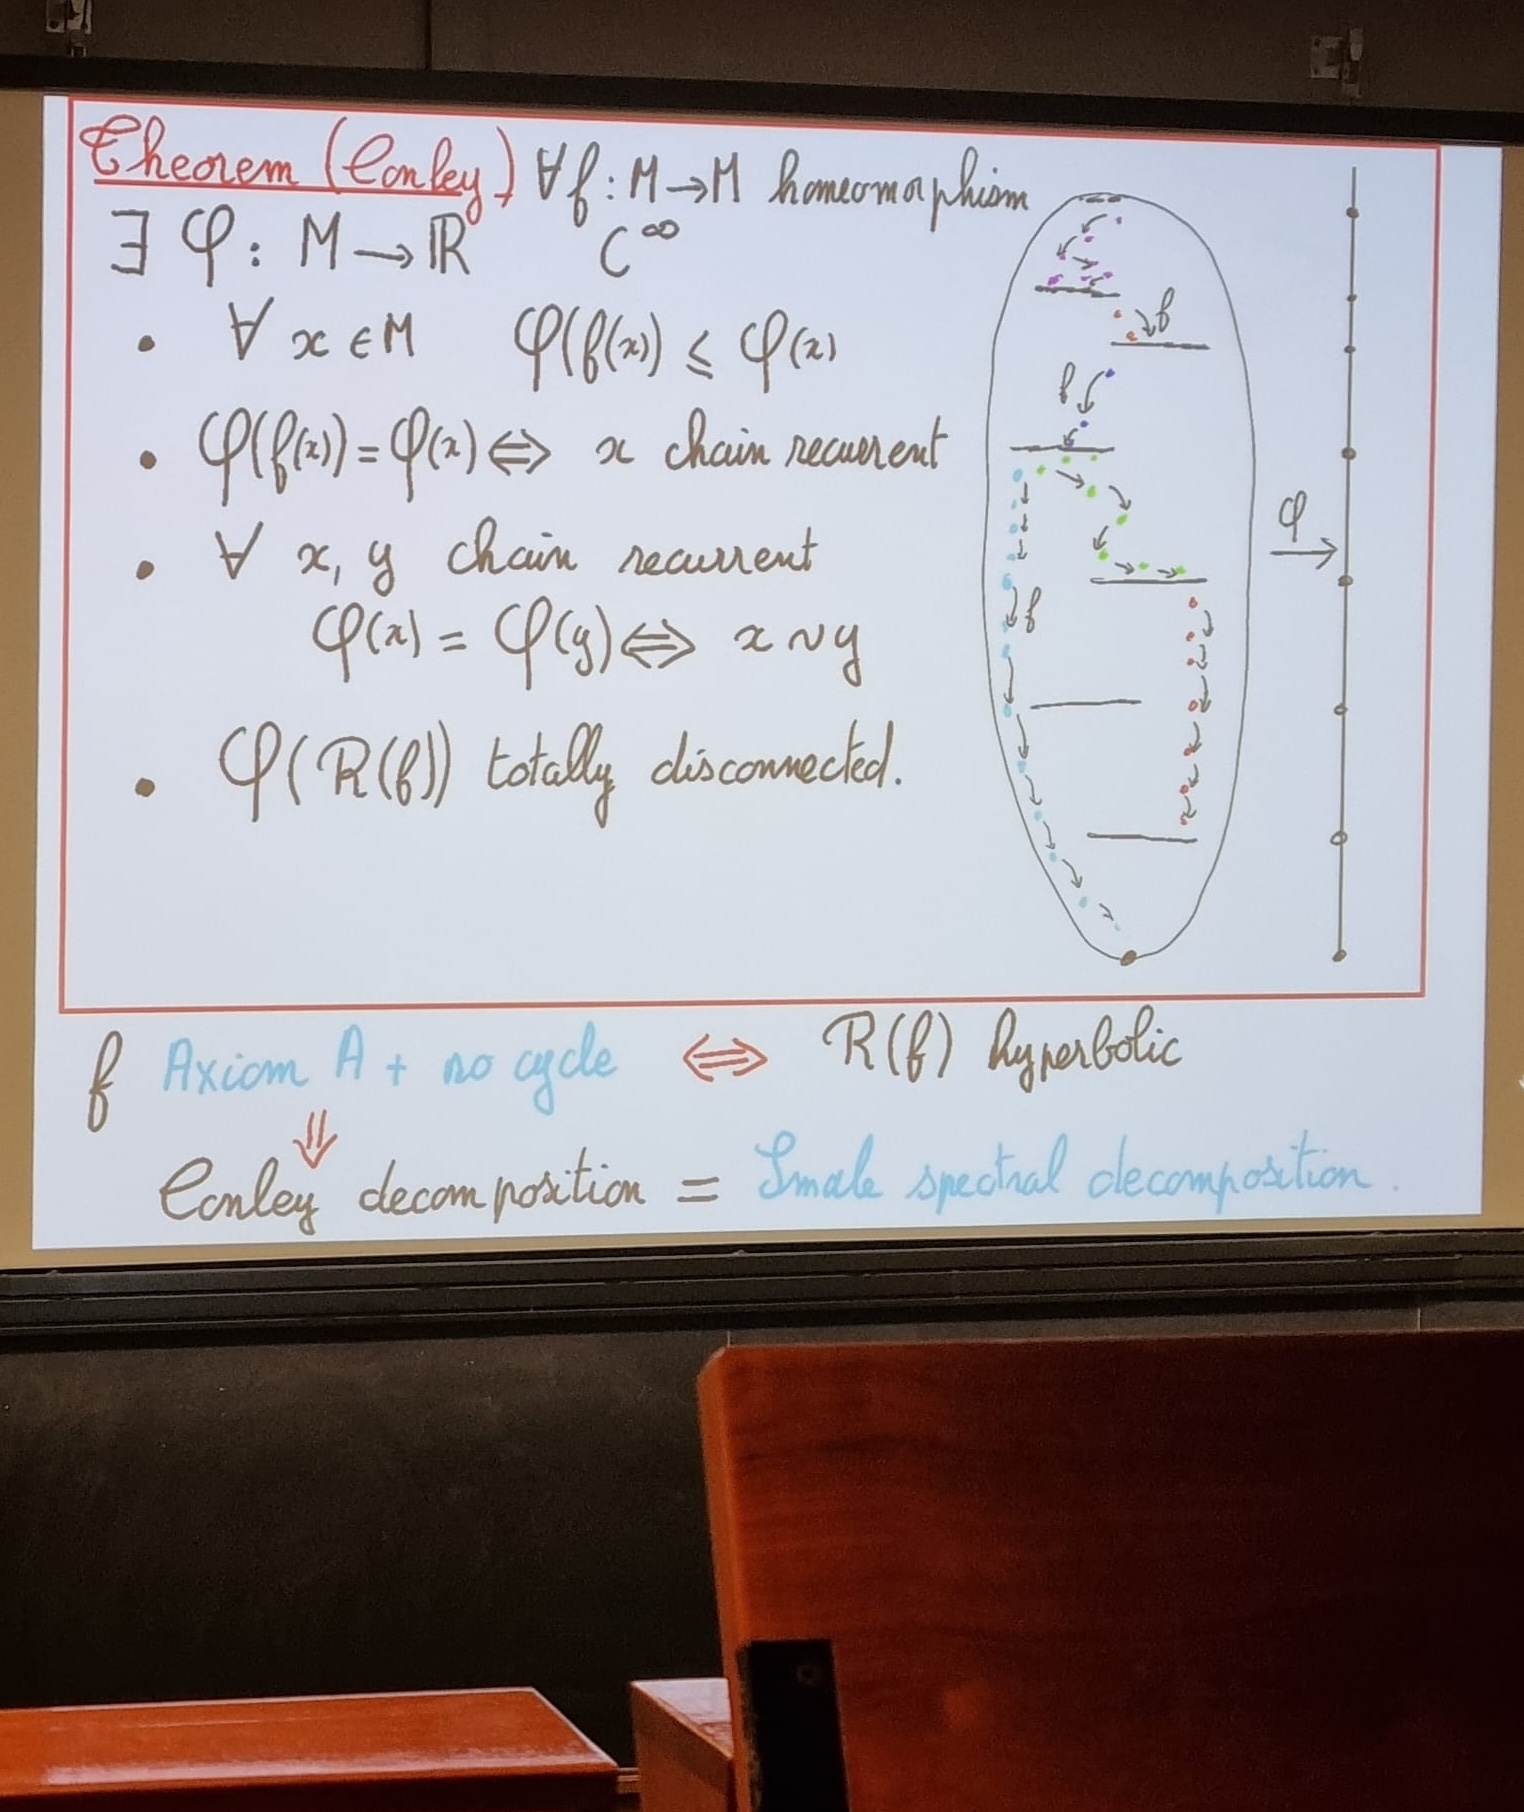 Theorem (Conley) ∀f : M→M homeomorphism
∃ φ : M → ℝ C^∞
• ∀ x ∈ M φ(f(x)) ≤ φ(x)
• φ(f(x)) = φ(x) ⇔ x chain recurrent
• ∀ x, y chain recurrent
φ(x) = φ(y) ⇔ x ~ y
• φ(R(f)) totally disconnected.
f
f
φ
f
f Axiom A + no cycle ⇔ R(f) hyperbolic
⇓
Conley decomposition = Smale spectral decomposition.